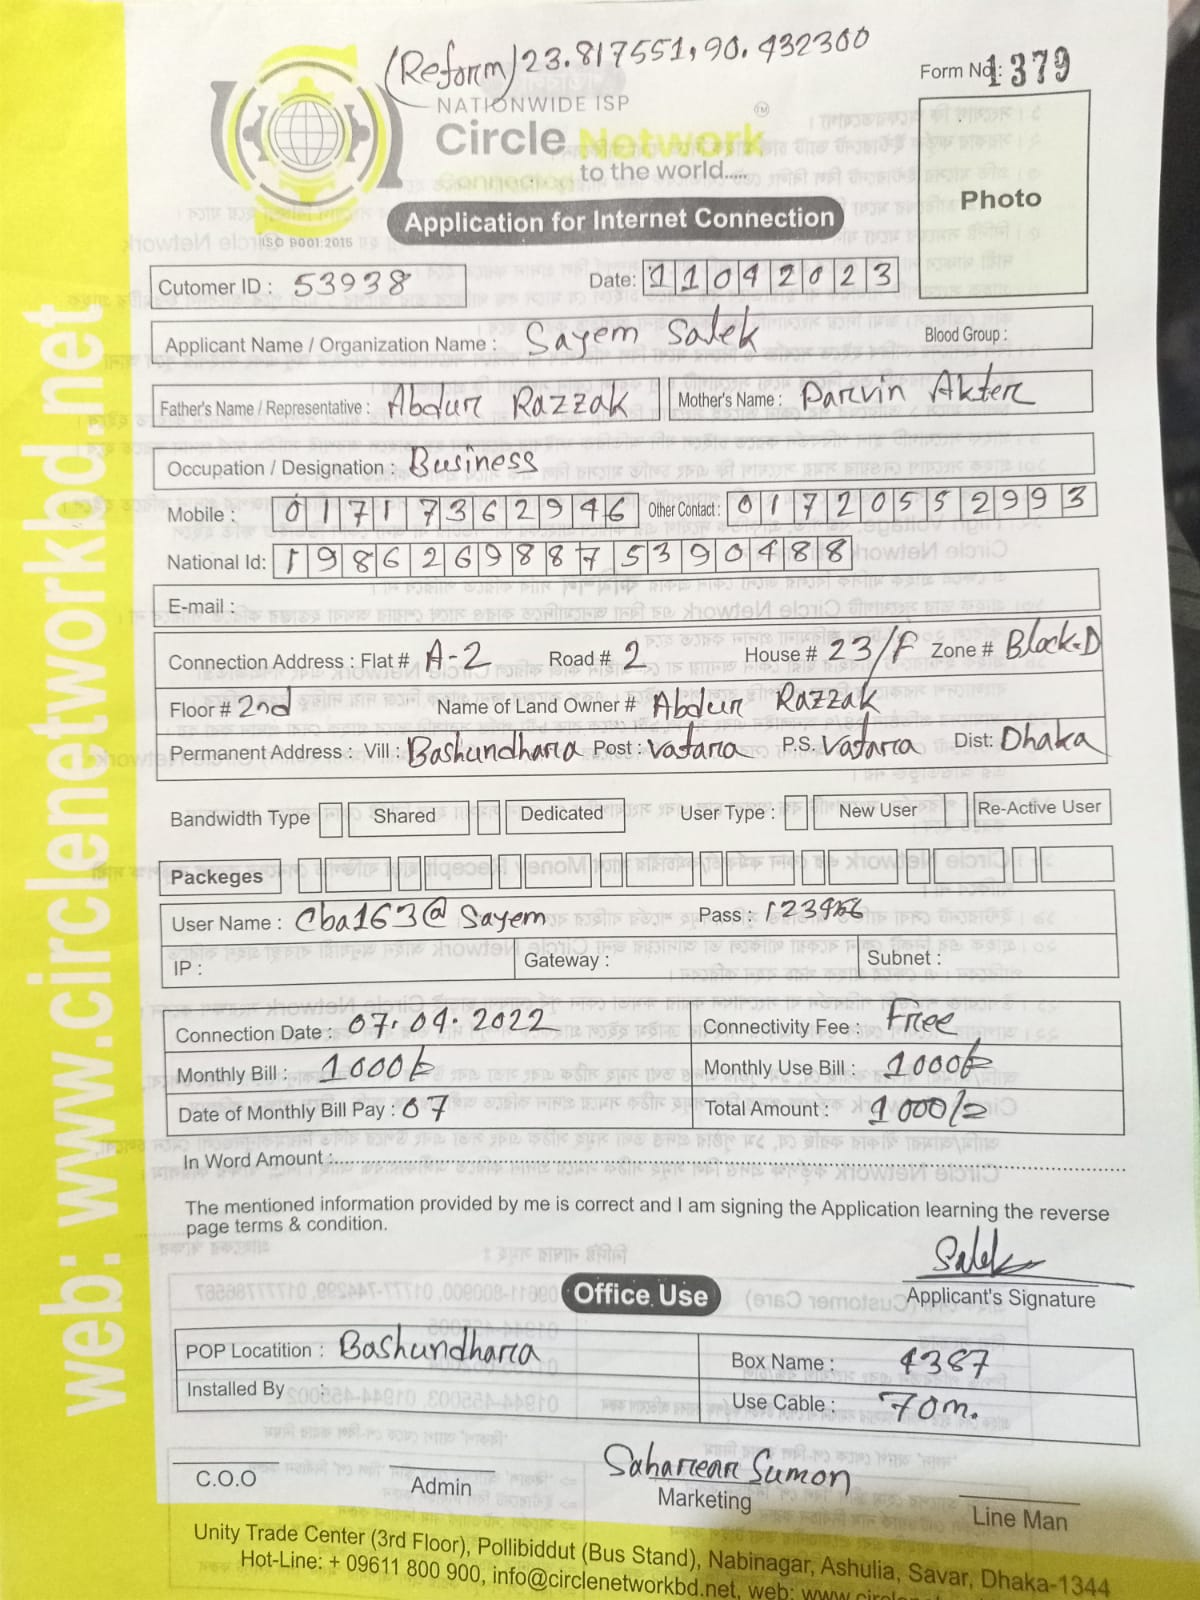 (Reform) 23.817551, 90.432300
Form No: 1379
NATIONWIDE ISP
Circle Network TM
Connected to the world.....
Photo
Application for Internet Connection
ISO 9001:2015
Cutomer ID : 53938
Date: 11042023
Applicant Name / Organization Name : Sayem Salek
Blood Group :
Father's Name / Representative : Abdur Razzak
Mother's Name : Parvin Akter
Occupation / Designation : Business
Mobile : 01717362946
Other Contact : 01720552993
National Id: 19862698875390488
E-mail :
Connection Address : Flat # A-2 Road # 2 House # 23/F Zone # Block-D
Floor # 2nd Name of Land Owner # Abdur Razzak
Permanent Address : Vill : Bashundhara Post : Vatara P.S. Vatara Dist: Dhaka
Bandwidth Type Shared Dedicated User Type : New User Re-Active User
Packeges
User Name : Cba163@Sayem Pass : 123456
IP : Gateway : Subnet :
Connection Date : 07.04.2022 Connectivity Fee : Free
Monthly Bill : 1000/= Monthly Use Bill : 1000/=
Date of Monthly Bill Pay : 07 Total Amount : 1000/=
In Word Amount :
The mentioned information provided by me is correct and I am signing the Application learning the reverse
page terms & condition.
Salek
Applicant's Signature
Office Use
POP Locatition : Bashundhara Box Name : 4387
Installed By : Use Cable : 70m.
Sahariear Sumon
C.O.O Admin Marketing Line Man
Unity Trade Center (3rd Floor), Pollibiddut (Bus Stand), Nabinagar, Ashulia, Savar, Dhaka-1344
Hot-Line: + 09611 800 900, info@circlenetworkbd.net, web: www.circlen
web: www.circlenetworkbd.net